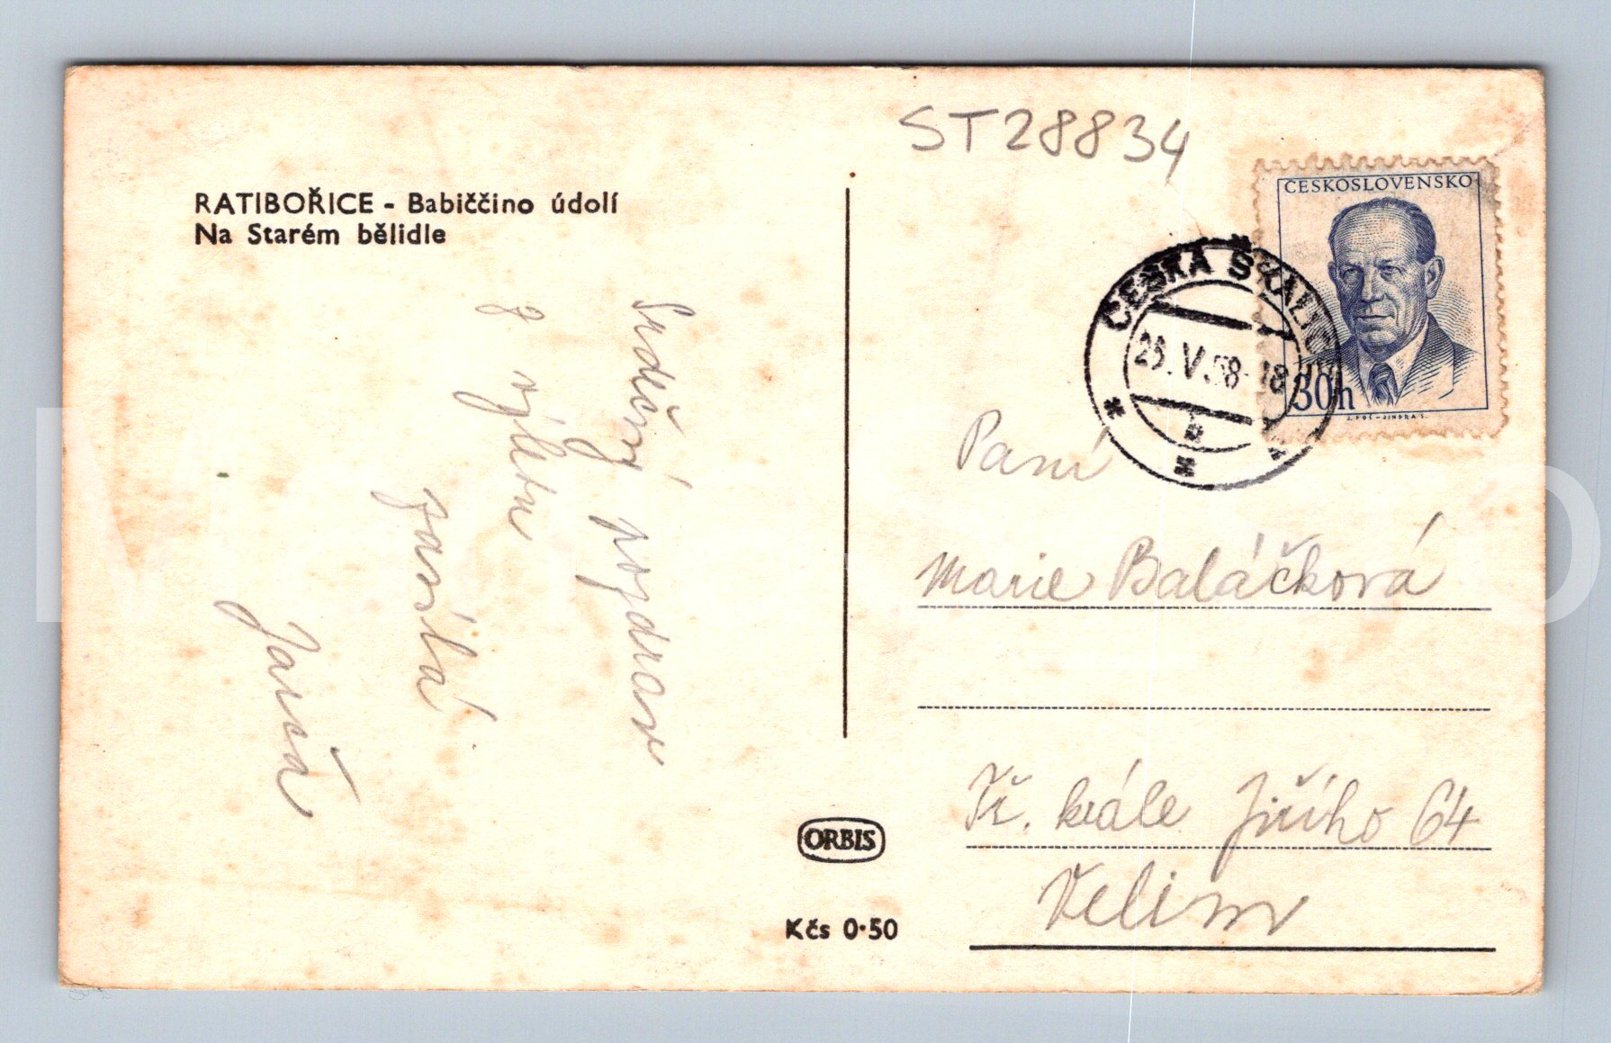 ST28834
RATIBOŘICE - Babiččino údolí
Na Starém bělidle
ČESKOSLOVENSKO
30h
ČESKÁ SKALICE
V.58-18
b
Srdečný pozdrav
z výletu
zasílá
Jarča
Paní
Marie Baláčková
Tř. krále Jiřího 64
Velim
ORBIS
Kčs 0·50